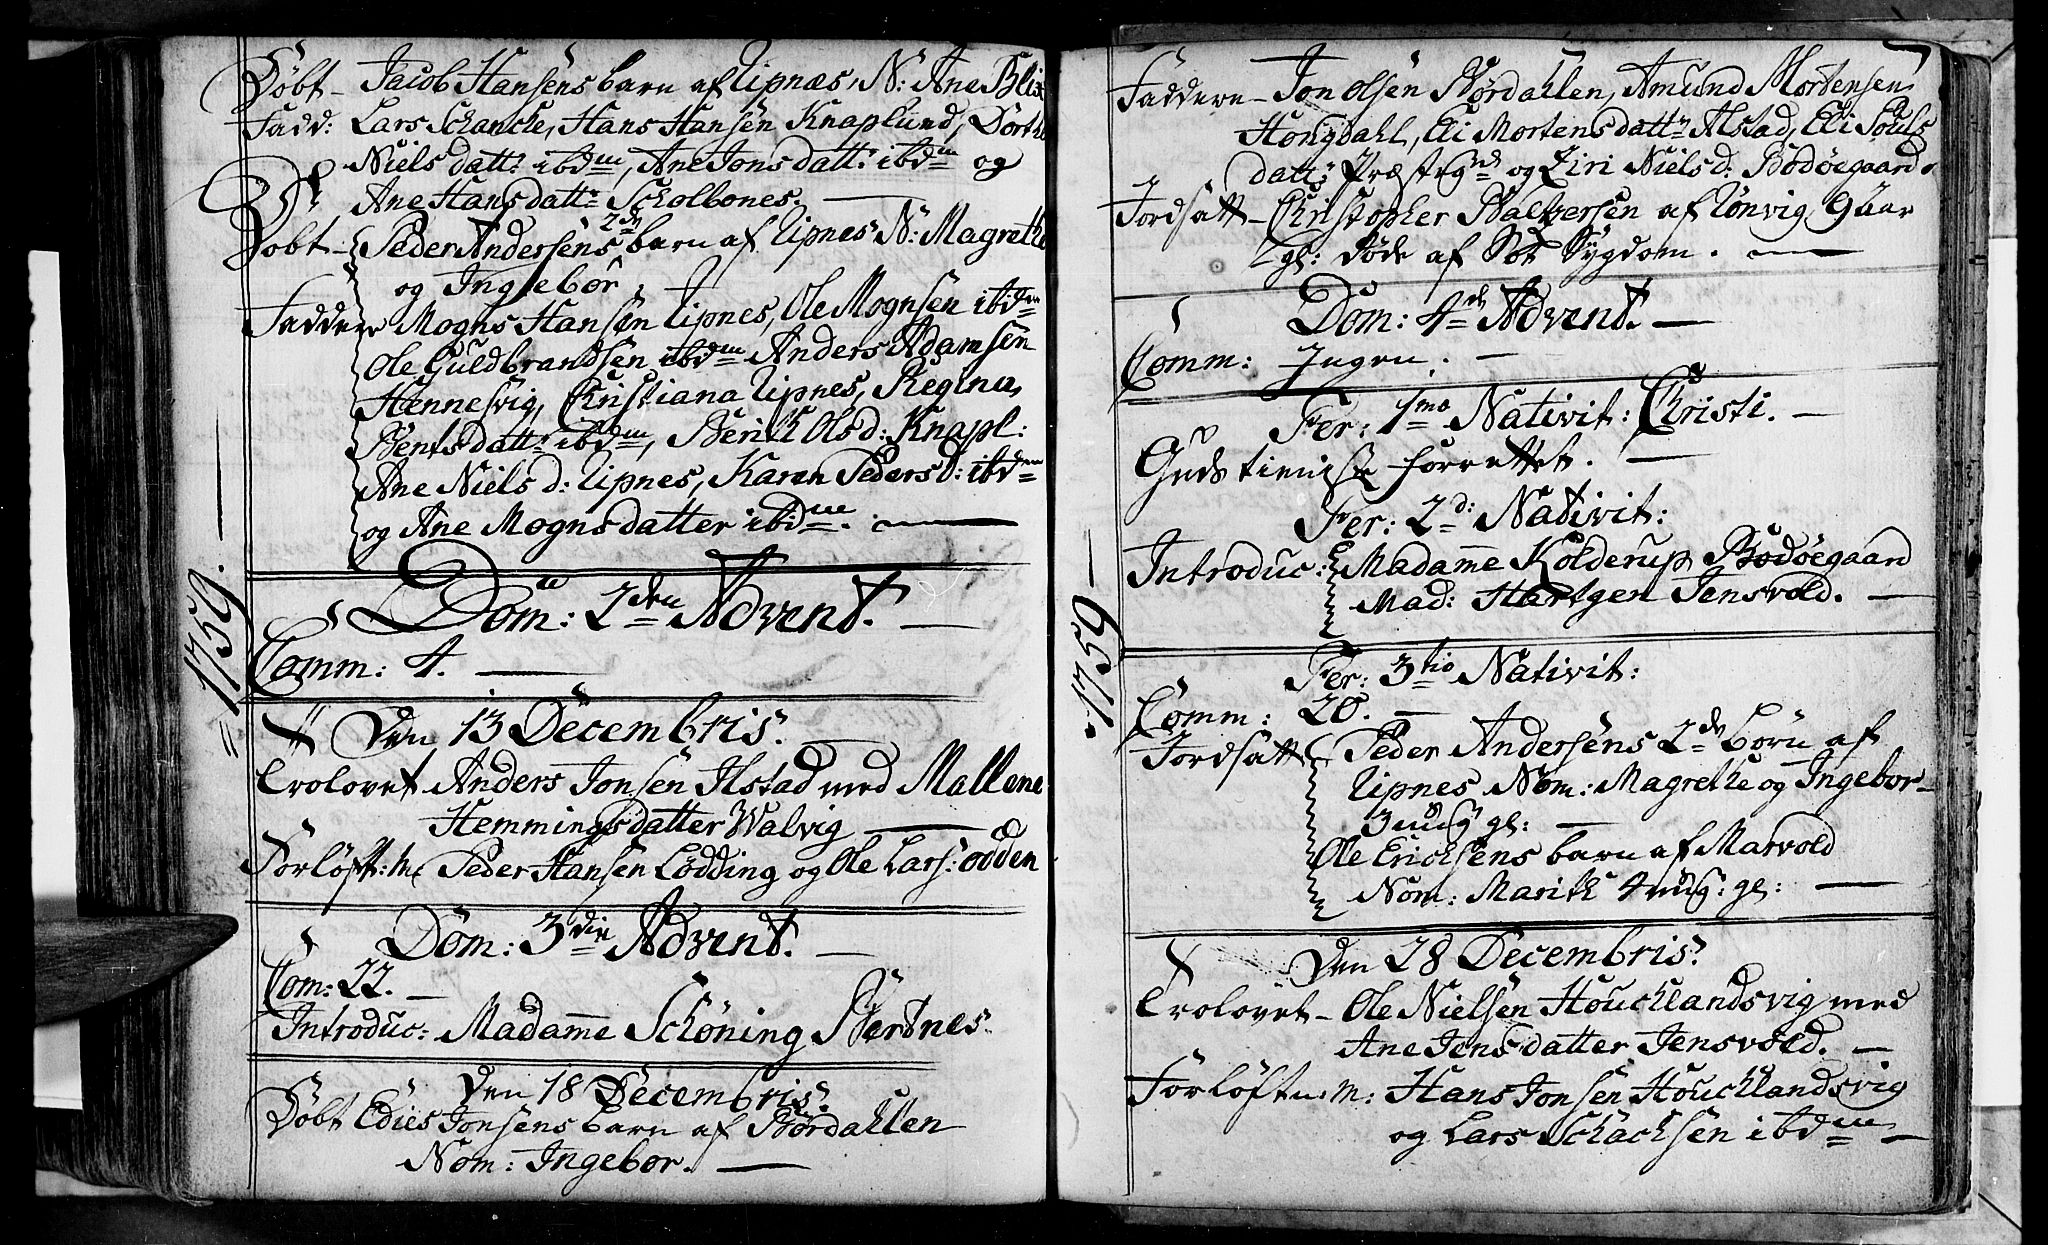 Döbt - Jacob Hansens barn af Lipnæs, N: Ane Blix
Fadd: Lars Schancke, Hans Hansen Knaplund, Dorthe
Niels datt: ibd:m, Ane Jons datt: ibd:m og
Ane Hans datt: Scholbones.
Döbt - Peder Andersens 2de barn af Lipnes N: Magrethe
og Ingebor.
Faddere Mogns Hansen Lipnes, Ole Mognsen ibd:m
Ole Guldbrandsen ibd:m Anders Adamsen
Hennesvig, Christiana Lipnes, Regina
Bents datt: ibd:m, Berith Ols d: Knapl:
Ane Niels d: Lipnes, Karen Peders d: ibd:m
og Ane Mogns datter ibd:m.
= 1759. -
Dom: 2den Advent.
Comm: 4.
Den 13 Decembris.
Trolovet Anders Jonsen Ilstad med Mallene
Hemmingsdatter Walvig
Forlöft: m: Peder Hansen Lödding og Ole Lars: Odden
Dom: 3die Advent.
Com: 22.
Introduc: Madame Schöning Stertnes.
Den 18 Decembris.
Döbt Edies Jonsens barn af Bördahlen
Nom: Ingebor.
Faddere - Jon Olsen Bördahlen, Amund Mortensen
Hongdahl, Eli Mortens datt: Alstad, Eli Pouls
datt: Præstegd: og Ziri Niels d: Bodöegaard.
Jordsatt - Christopher Baltzersen af Lönvig, 9 aar
gl: döde af Sot Sygdom.
- 1759 -
Dom: 4de Advent.
Comm: Ingen.
Fer: 1ma Nativit: Christi.
Guds tieniste forrettet.
Fer: 2d: Nativit:
Introduc: Madame Kolderup Bodöegaard
Mad: Hartgen Jensvold.
Fer: 3tio Nativit:
Comm: 20.
Jordsatt Peder Andersens 2de Börn af
Lipnes Nom: Magrethe og Ingebor
3 uug: gl:
Ole Erichsens barn af Marvold
Nom: Marith 4 uug: gl:
Den 28 Decembris.
Trolovet - Ole Nielsen Houchlandsvig med
Ane Jens datter Jensvold.
Forlöftn: m: Hans Jonsen Houchlandsvig
og Lars Schachsen ibd:m